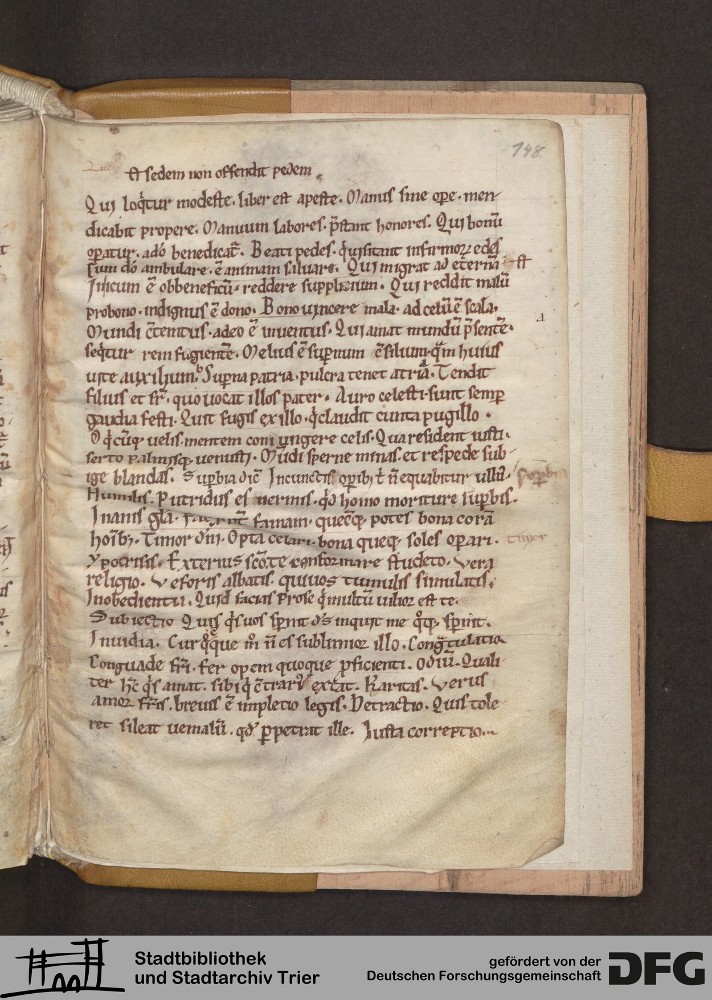 148
Et sedem non offendit pedem
Qui loq̄tur modeste. liber est a peste. Manus sine ope. men-
dicabit propere. Manuum labores. p̄stant honores. Qui bonū
opatur. adō benedicat̄. Beati pedes. q̄uisitant infirmoꝝ edes
sum dō ambulare. ē animam saluare. Qui migrat ad et̄ernā. Et
Iniicum ē ob beneficiū. reddere supplicium. Qui reddit malū
pro bono. indignus ē dono. Bono uincere mala. ad celū ē scala.
Mundi ctemtus. adeo ē inuentus. Qui amat mundū p̄sentē.
seq̄tur rem fugientē. Melius ē supnum ē silium. q̄m huius
uite auxilium. Supna patria. pulcra tenet atria. Tendit
filius et fr̄. quo uocat illos pater. Auro celesti. sunt semp
gaudia festi. Quit fugis ex illo. q̄ claudit cunta pugillo.
O q̄cūq; uelis. mentem coniungere celis. Qua resident iusti.
serto palmisq; uenusti. Mūdi sperne minas. et respede sub-
ige blandas. Supbia dic̄ In cunctis opib; t̄ n̄ equabitur ullus.
Humilis. Putridus es uermis. qd homo moriture supbis.
Inanis gla. famam. quecq; potes bona corā
hoīb;. Timor dnī. Opta celari. bona queq; soles opari. timor
Ypocrisis. Exterius scōte conformare studeto. Vera
religio. Ve foris albatis. qui uos tumulis simulatis.
Inobedientia. Quid facias prose q̄ multū uilior est te.
Subiectio Quis q̄ suos spnit ds inquit me q̄q; spnit.
Inuidia. Cur q̄q̄que m̄ n̄ es sublimior illo. Congr̄tulatio
Conguade fr̄i. fer opem quoque pficienti. Odiū. Quali-
ter hc̄ q̄s amat. sibi q̄ ē trari ext̄at. Karitas. Verus
amor fr̄is. breuis ē impletio legis. Detractio. Quis tole
ret sileat ue malū. qd ppetrat ille. Iusta correptio.
Stadtbibliothek
und Stadtarchiv Trier
gefördert von der
Deutschen Forschungsgemeinschaft
DFG